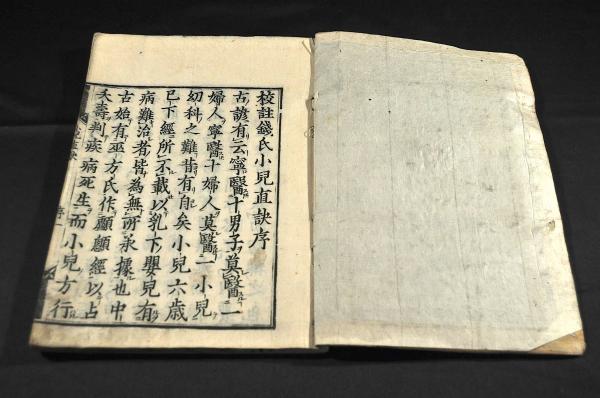 校註錢氏小兒直訣序
古諺有云寧醫十男子莫醫一
婦人寧醫十婦人莫醫一小兒
幼科之難昔有自矣小兒六歲
已下經所不載以乳下嬰兒有
病難治者皆為無所承據也中
古始有巫方氏作顱顖經以占
夭壽判疾病死生而小兒方行